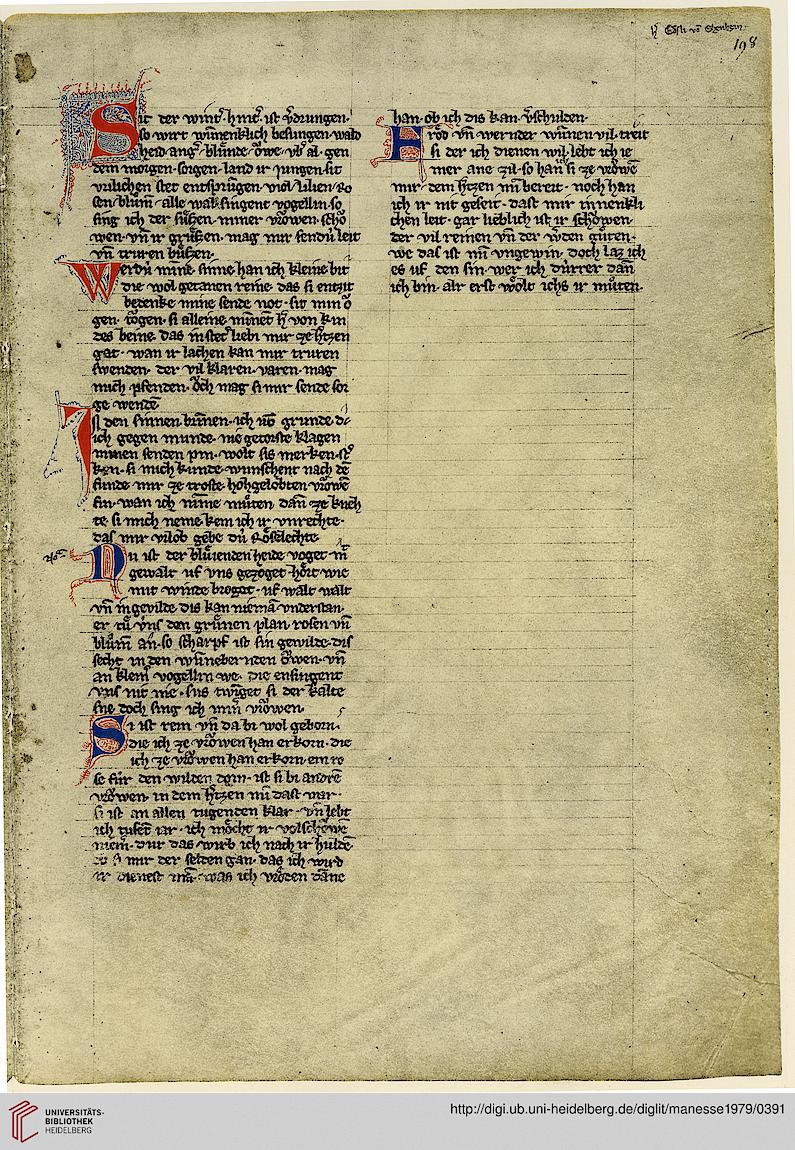 198
Sit der wint̾ hint̾ ist v̾drungen·
so wirt wūnenklich besungen wald
heid ang̾ blůnde· ôwe· vb̾ al· gen
dem morgen· sorgen· land ir jungen· sit
vrilichen stet entsprungen· viol lilien ro
sen blům̄· alle wal· singent vogellin so
sing ich der sůssen· miner vrôwen· schô
wen· vn̄ ir grůssen· mag mir sendů leit
vn̄ truren bůssen·
Werdů mine sinne han ich kleine bit
die wol getanen reine· das si enzit
bedenke mine sende not· sit min ô
gen· tôgen· si alleine· minnet h̾ von kin
des beine· das
gat· wan ir lachen kan mir truren
swenden· der vil klaren· varen· mag
mich pfenden· ôch mag si mir sende sor
ge wende̅
den sinnen brinnen· ich grunde
ich gegen munde· nie getorste klagen
minen senden pin· wolt sis merken· st̾
ken· si mich kunde· wunschent nach de̅
funde· mir ze troste· hohgelobten vrôwe̅
sin· wan ich můten· dan̄ ze
te· si mich neme kem ich ir vnrechte·
das mir vrlob gebe dů rôselechte·
Du ist der blůienden heide voget·
gewalt· vf vns gezoget· hôrt wie
mit winde broget· vf walt
vn̄ in gevilde· dis kan niema̅ vnderstan·
er tů vns den grůnen plan· rosen vn̄
blům̄ an· so scharpf ist sin gewilde· dis
secht· in den wūnebernden ôwen· vn̄
an klein̄ vogellin we· die ensingent
vns nit me· sus twinget si der kalte
sne doch sing ich vrôwen·
Si ist rein vn̄ da bi wol geborn·
die ich ze vrôwen han erkorn· die
ich ze vrôwen han erkorn· ein ro
se fůr den wilden dorn· ist si bi andre̅
vrôwen· in dem h̾tzen
si ist an allen tugenden klar· vn̄ lebt
ich tusent iar· ich môcht ir
niem̾· dur das wirb ich nach ir hulde·
si mir der selden gan· das ich wird
ir dienest ma̅· was ich vrôden dan̄e
han· ob ich dis kan v̾schulden·
Hrôd vn̄ wernder wūnen vil· treit
si der ich dienen wil· lebt ich ie
mer ane zil· so han si ze vrôwe̅
mir· dem h̾tzen bereit· noch han
ich ir nit geseit· dast mir innenkli
chen leit· gar lieblich ist ir schôwen·
der vil reinen vn̄ der w̾den gůten·
we das ist vngewin· doch laz ich
es vf den sin· wer ich dūrrer dan̄
ich bin· alr erst wôlt ichs ir můten·
UNIVERSITÄTS-
BIBLIOTHEK
HEIDELBERG
http://digi.ub.uni-heidelberg.de/diglit/manesse1979/0391